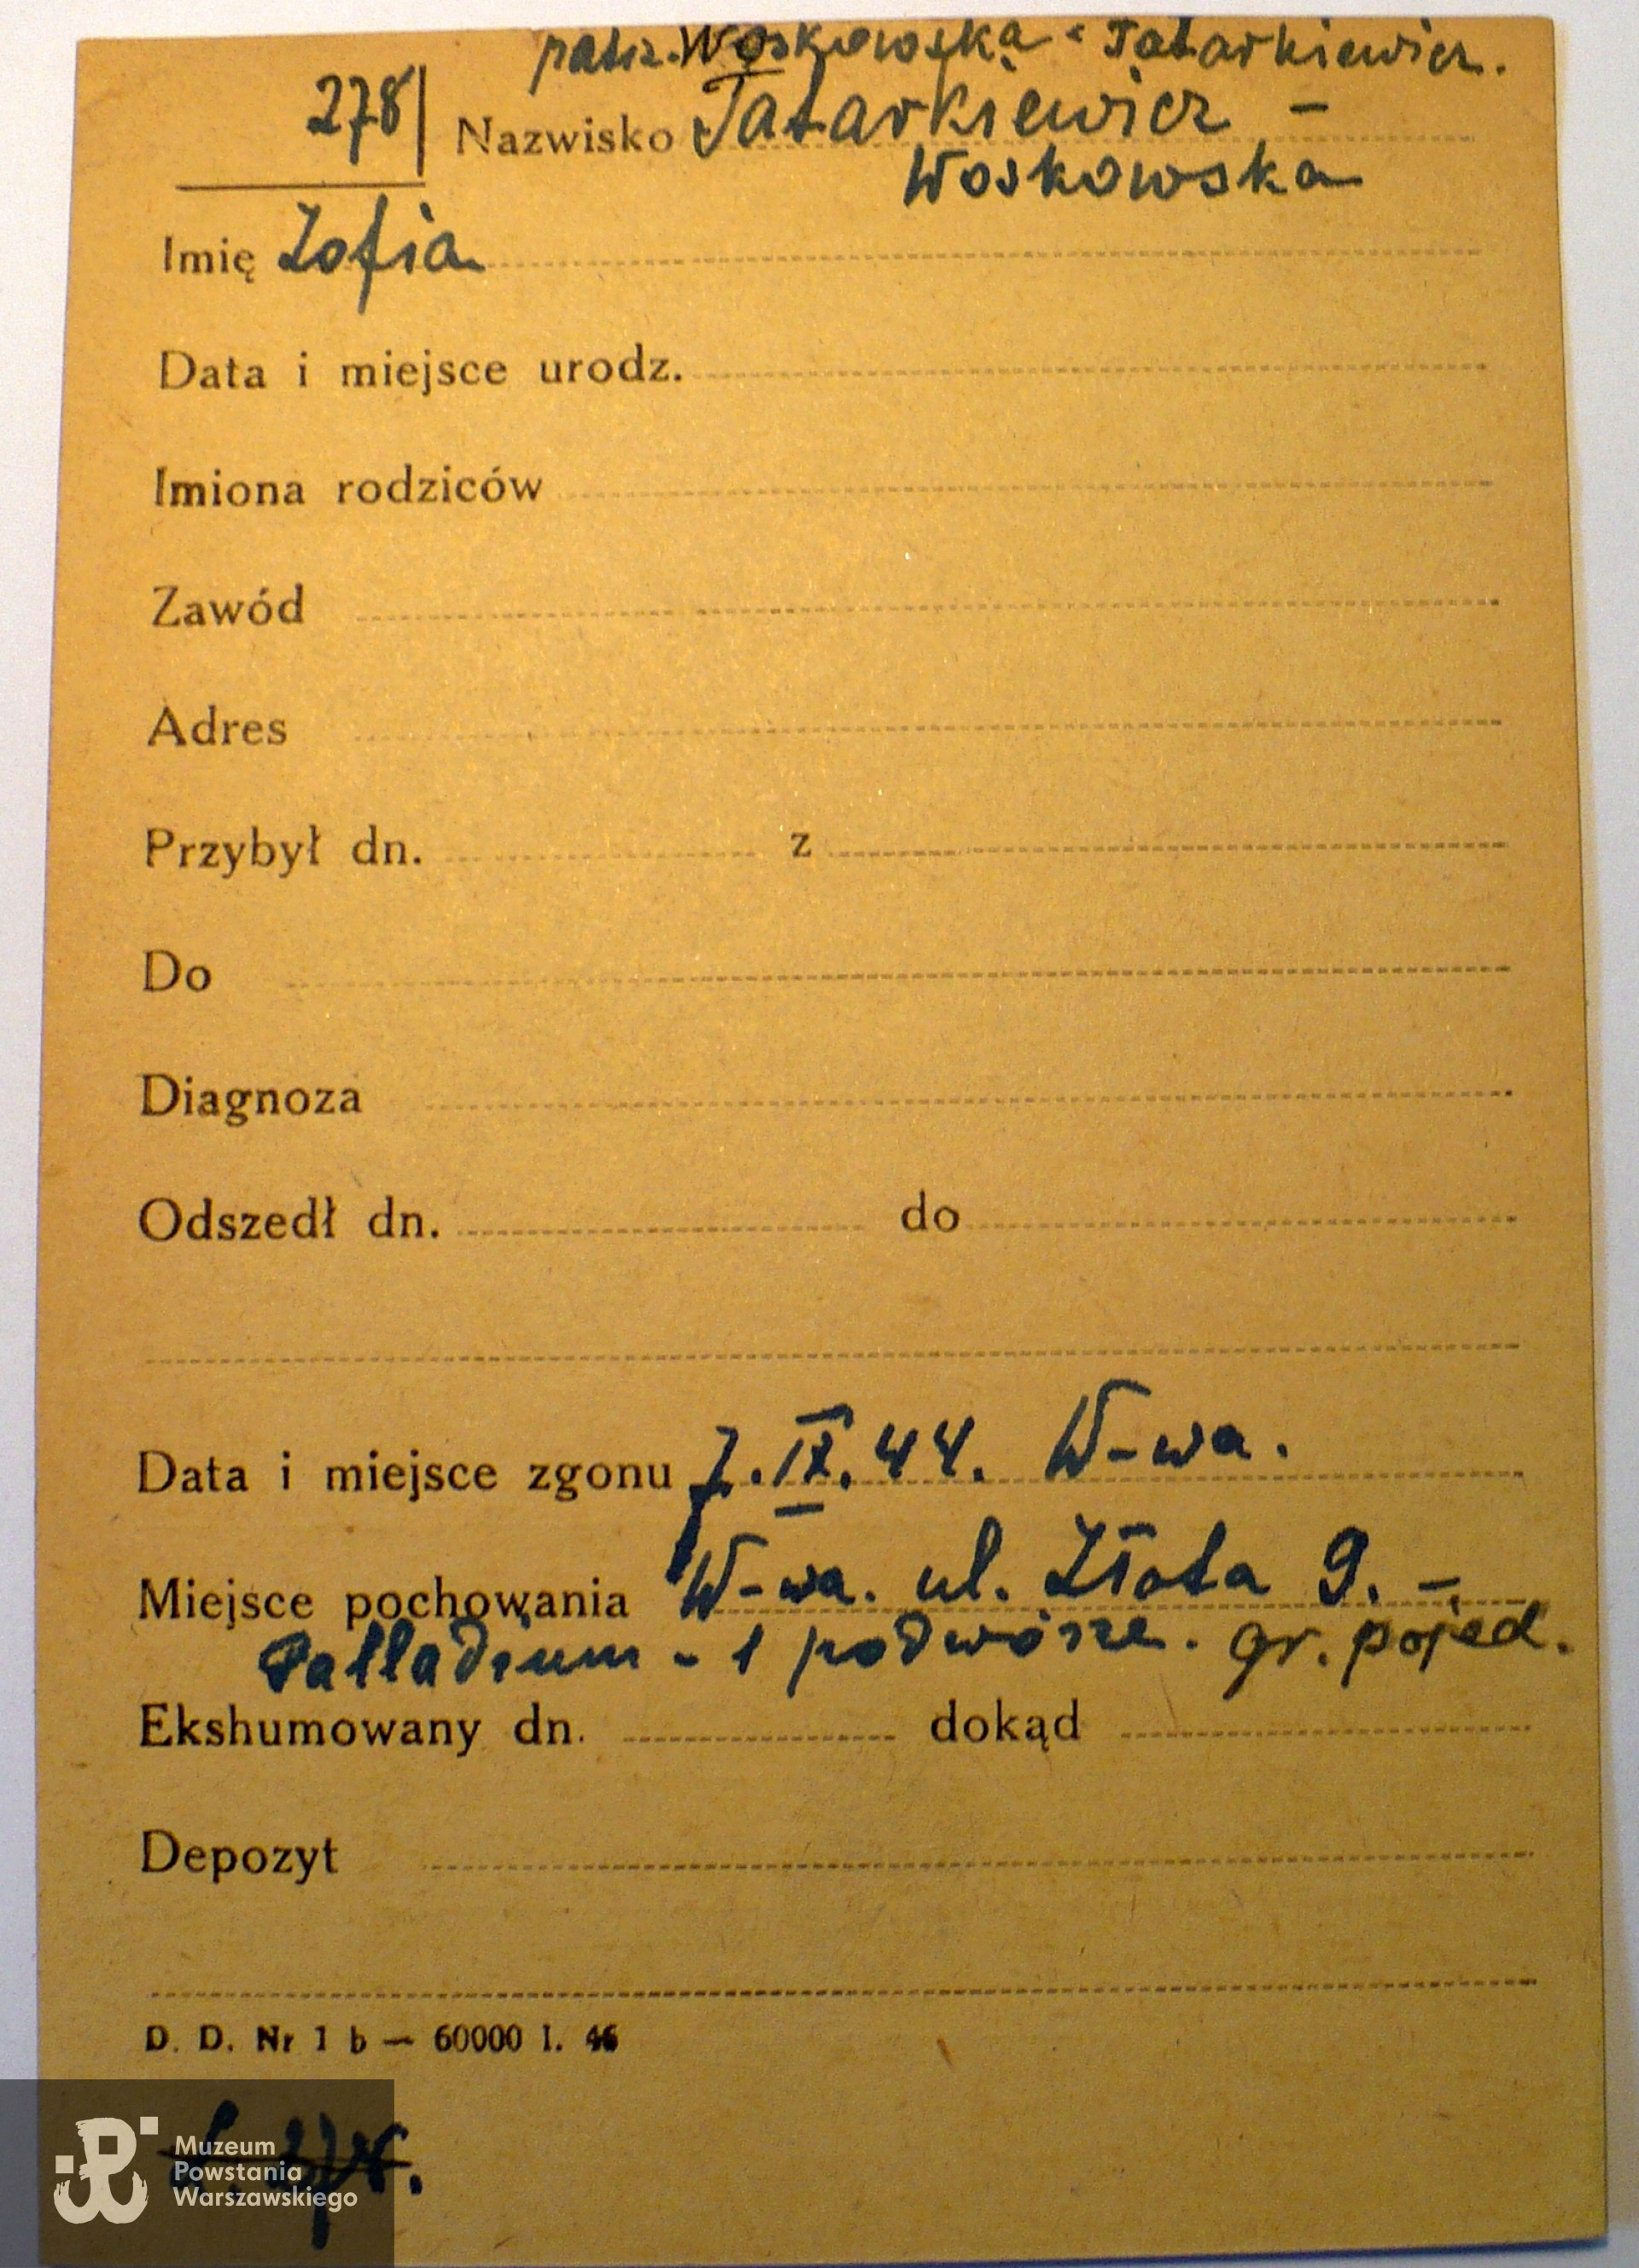 patrz. Woskowska - Tatarkiewicz.
278 Nazwisko Tatarkiewicz -
Woskowska
Imię Zofia
Data i miejsce urodz.
Imiona rodziców
Zawód
Adres
Przybył dn. z
Do
Diagnoza
Odszedł dn. do
Data i miejsce zgonu 7.IX.44. W-wa.
Miejsce pochowania W-wa. ul. Złota 9. -
Palladium - 1 podwórze. gr. pojed.
Ekshumowany dn. dokąd
Depozyt
D. D. Nr 1 b — 60000 I. 46
Muzeum
Powstania
Warszawskiego